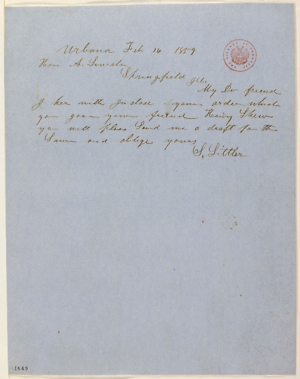 Urbana Feb 16 1859
Hon A. Lincoln
Springfield Ills
My Dr friend
I here with inclose yours order which
you gave your friend Henry
you will please Send me a draft for the
Same and oblige yours
S. Littler
1643